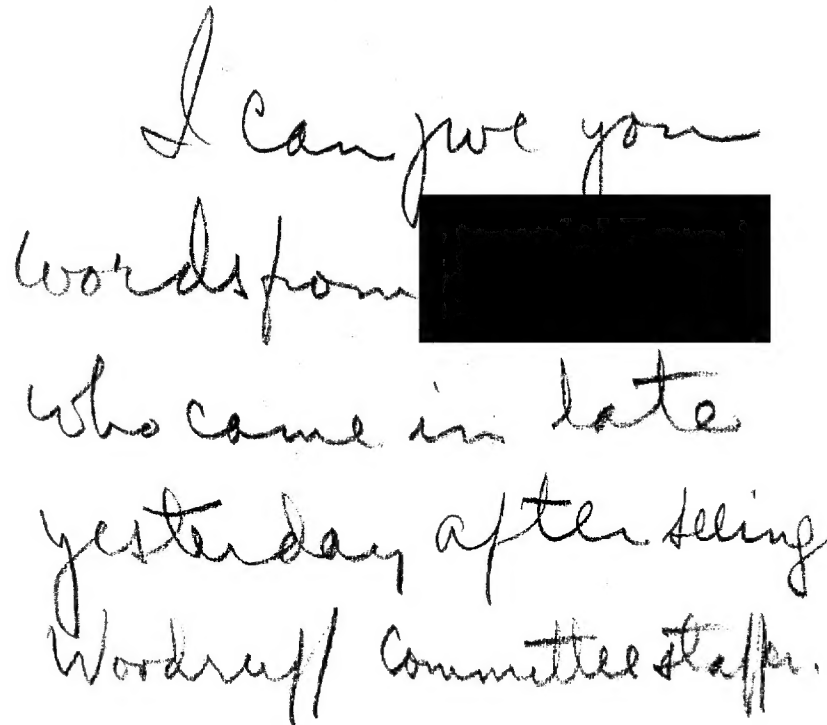 I can give you
words from
who came in late
yesterday after seeing
Woodruff Committee staffer.